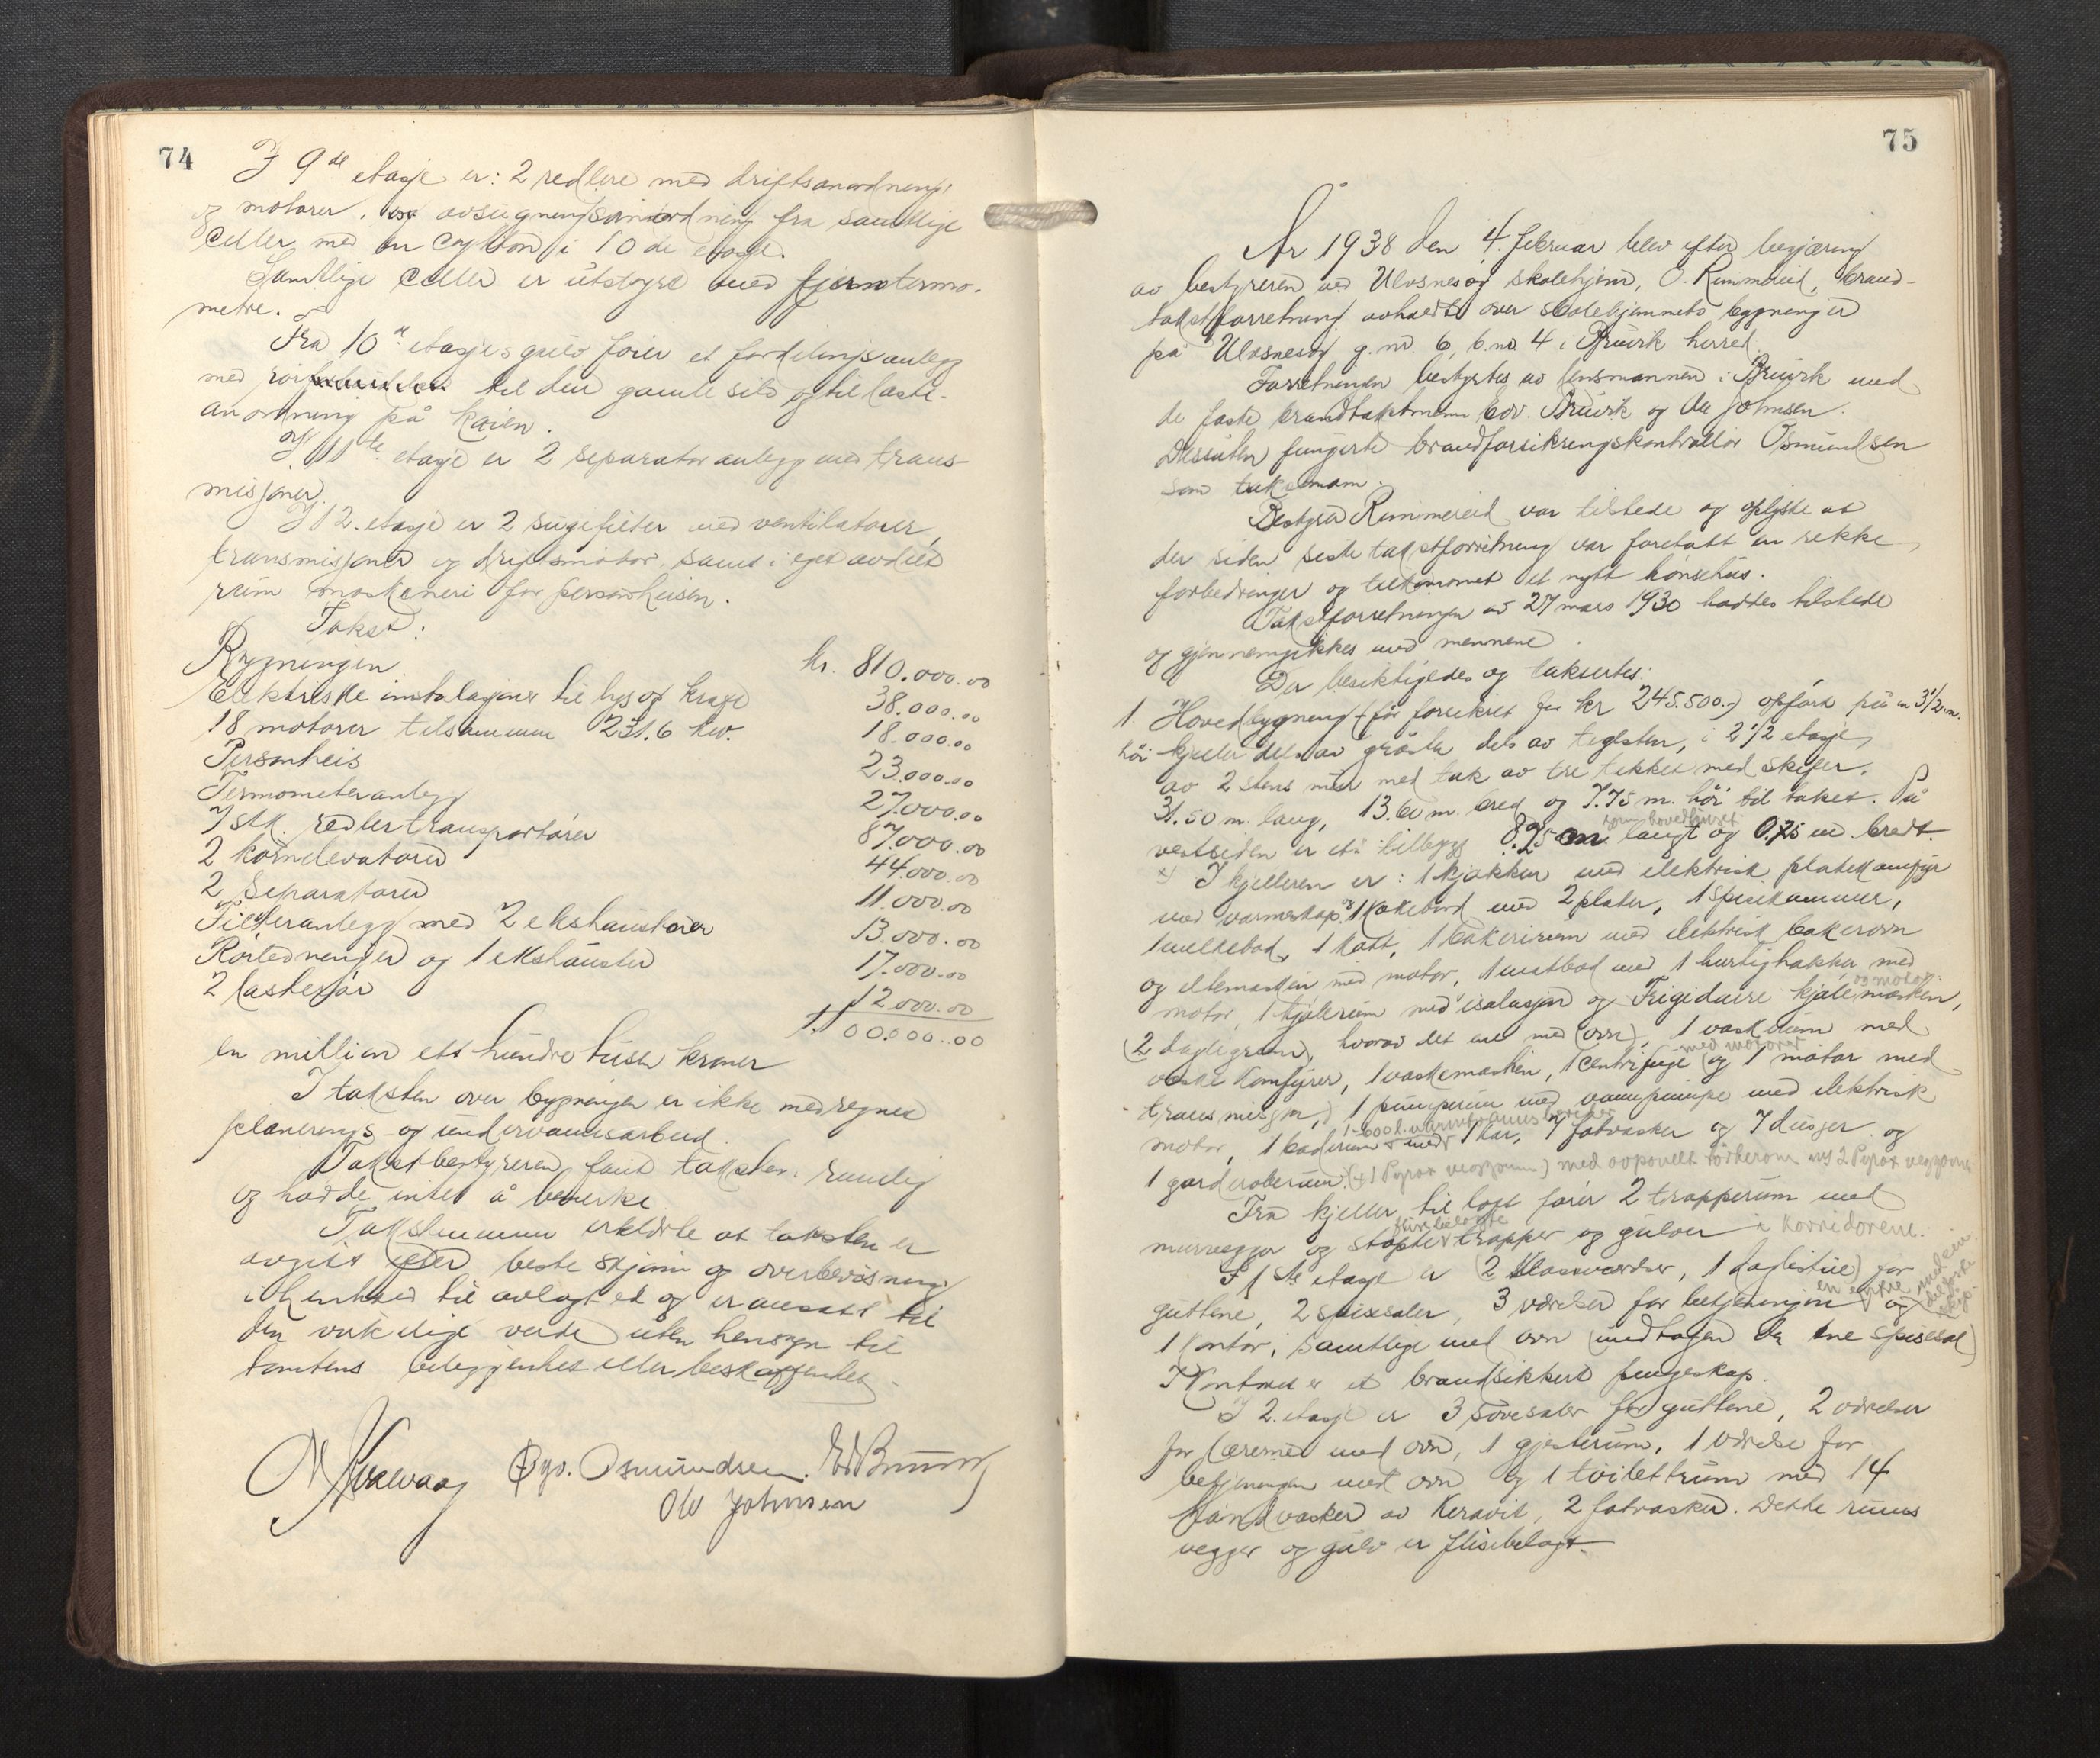 74
I 9de etasje er: 2 redlere med driftsanordning,
motorer, og avsugningsanordning fra samtlige
celler med en cyklon i 10de etasje.
Samtlige celler er utstyrt med fjerntermo-
metre.
Fra 10de etasjes gulv fører et fordelingsanlegg
med rør til den gamle silo og til laste-
anordning på kaien.
I 11te etasje er 2 separatoranlegg med trans-
misjoner.
I 12. etasje er 2 sugefilter med ventilatorer,
transmisjoner og driftsmotor, samt i eget avdelt
rum maskineri for personheisen.
Takst:
Bygningen kr. 810.000.00
Elektriske instalasjoner til lys og kraft 38.000.00
18 motorer tilsammen 231.6 kw. 18.000.00
Personheis 23.000.00
Termometeranlegg 27.000.00
7 stk. redlertransportører 87.000.00
2 kornelevatorer 44.000.00
2 Separatorer 11.000.00
Filteranlegg med 2 ekshaustorer 13.000.00
Rørledninger og 1 ekshauster 17.000.00
2 lasterør 12.000.00
1.100.000.00
en million ett hundre tusen kroner
I taksten over bygningen er ikke medregnet
planerings- og undervannsarbeid.
Takstbestyreren fant taksten rimelig
og hadde intet å bemerke
Takstmennene erklærte at taksten er
avgitt efter beste skjønn og overbevisning
i henhold til avlagt ed og er ansatt til
den virkelige verdi uten hensyn til
tomtens beliggenhet eller beskaffenhet.
Øyv. Osmundsen. E Bruvik
Ole Johnsen
75
År 1938 den 4. februar blev efter begjæring
av bestyreren ved Ulvsnesøy skolehjem, O. Rimmereid, brand-
takstforretning avholdt over skolehjemmets bygninger
på Ulvsnesøy g.nr. 6, b.nr. 4 i Bruvik herred.
Forretningen bestyrtes av lensmannen i Bruvik med
de faste brandtakstmenn Edv. Bruvik og Ole Johnsen.
Dessuten fungerte brandforsikringskontrollør Osmundsen
som taksmann.
Bestyrer Rimmereid var tilstede og oplyste at
der siden siste takstforretning var foretatt en rekke
forbedringer og tilkommet et nytt hönsehus.
Takstforretningen av 27 mars 1930 hadtes tilstede
og gjennemgikkes med mennene.
Der besiktigedes og taksertes:
1. Hovedbygning (før forsikret for kr 245.500.-) opført på en 3 1/2 m.
høi kjeller dels av gråsten dels av teglsten, i 2 1/2 etasje,
av 2 stens mur med tak av tre tekket med skifer.
31.50 m. lang, 13.60 m. bred og 7.75 m. høi til taket. På
som hovedhuset
vestsiden er et tilbygg 8.25 m. langt og 0.75 m. bredt.
x) I kjelleren er: 1 kjøkken med elektrisk platekomfyr
med varmeskap, 1 kokebord med 2 plater, 1 spisekammer,
1 melkebod, 1 kott, 1 bakerirum med elektrisk bakerovn
og eltemaskin med motor, 1 matbod med 1 hurtighakker med
og motor
motor, 1 kjølerum med isolasjon og Frigidaire kjølemaskin,
(2 dagligrum, hvorav det ene med ovn), 1 vaskerum med
med motorer
vaske komfyrer, 1 vaskemaskin, 1 centrifuge (og 1 motor med
transmisjon,) 1 pumperum med vannpumpe med elektrisk
1-600 l. varmtvannsbereder
motor, 1 baderum med 1 kar, 7 fotvasker og 7 dusjer og
1 garderoberum. (+1 Pyrox veggovn) med avpanelt tørkerom m/ 2 Pyrox veggovner
Fra kjeller til loft fører 2 trapperum med
flisbelagte
murvegger og støpte trapper og gulver i korridorene.
I 1ste etasje er (2 klasseværelser, 1 dagligstue) for
en
guttene, 2 spisesaler, 3 værelser for betjeningen og
1 kontor, samtlige med ovn (undtagen den ene spisesal)
I kontoret er et brandsikkert pengeskap.
I 2. etasje er 3 sovesaler for guttene, 2 værelser
for lærerne med ovn, 1 gjesterum, 1 værelse for
betjeningen med ovn og 1 toilettrum med 14
håndvasker av Keravit, 2 fotvasker. Dette rums
vegger og gulv er flisebelagt.